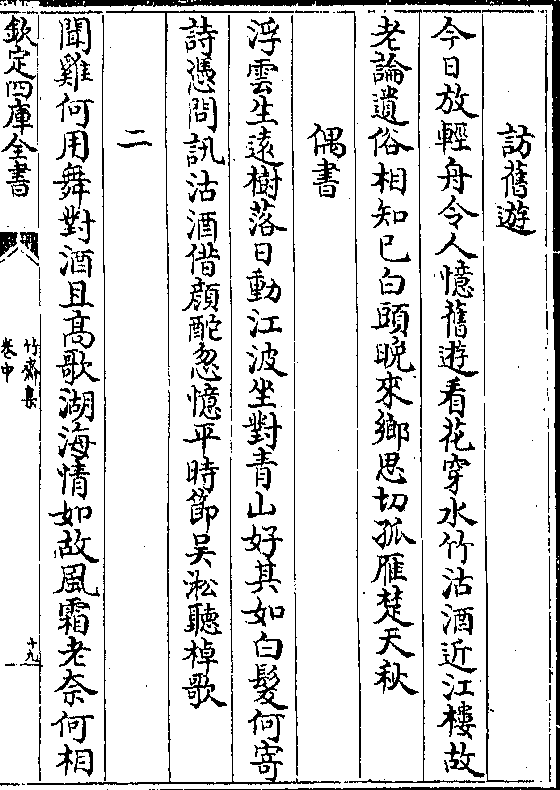 訪舊遊
今日放輕舟令人憶舊遊看花穿水竹沽酒近江樓故
老論遺俗相知已白頭晚來鄉思切孤雁楚天秋
偶書
浮雲生遠樹落日動江波坐對青山好其如白髮何寄
詩憑問訊沽酒借顔酡忽憶平時節吳淞聽棹歌
二
聞雞何用舞對酒且髙歌湖海情如故風霜老奈何相
欽定四庫全書
竹齋集
卷中
十九